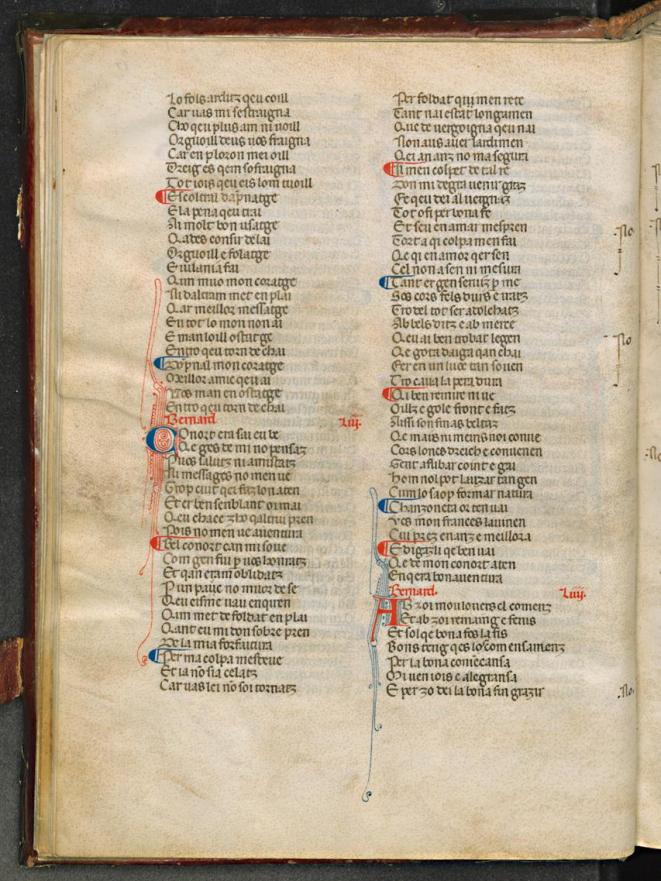 Lo fols arditz qeu coill
Car uas mi sestraigna
Cho qeu plus am ni uoill
Orguoill deus uos fraigna
Car en ploron mei oill
Dreig es qem sofraigna
Tot iois qeu eis lom tuoill
Escoltral dapnatge
E la pena qeu trai
Ai molt bon usatge
Qades consir de lai
Orguoill e folatge
E uilania fai
Qim muo mon coratge
Ni daltram met en plai
Qar meillor messatge
En tot lo mon non ai
E man loill ostatge
Entro qeu torn de chai
Dopnal mon coratge
Meillor amic qeu ai
Vos man en ostatge
Entro qeu torn de chai
Bernard. Liii.
Conort era sai eu be
Qe ges de mi no pensatz
Puos salutz ni amistatz
Ni messages no men ue
Trop cuit qei fatz lon aten
Et er ben senblant oi mai
Qeu chace zho qaltrui pren
Pois no men ue auentura
Bel conort can mi soue
Com gen fui p uos honratz
Et qan eram oblidatz
P un pauc no muor de se
Qeu eisme uau enquren
Qim met de foldat en plai
Qant eu mi don sobre pren
De la mia forfaitura
Per ma colpa mesceue
Et ia no sia celatz
Car uas lei no soi tornatz
Per foldat qui men rete
Tant nai estat longamen
Que de uergoigna qeu nai
Non aus auer lardimen
Qei an anz no ma segura
Il men colpet de tal re
Don mi degra uenir gratz
Fe qeu dei al uergnaz
Tot o fi per bona fe
Et seu en amar mespren
Tort a qi colpa men fai
Qe qi en amor qer sen
Cel non a sen ni mesura
Tant er gen seruitz p me
Sos cors fels durs e iratz
Tro del tot ser adolchatz
Ab bels ditz e ab merce
Qeu ai ben trobat legen
Qe gota daiga qan chai
Fer en un luoc tan souen
Tro caua la pera dura
Qi ben remire ni ue
Oillz e gole front e fatz
Aissi son finas beltatz
Qe mais ni meins noi conue
Cors loncs dreich e conuenen
Gent afibat coint e gai
Hom nol pot lauzar tan gen
Cum lo saup formar natura
Chanzoneta or ten uai
Ves mon frances lauinen
Cui prez enanz e meillora
E digaz li qe ben uai
Qe de mon conort aten
Enqera bon auentura
Bernard. Liiii.
Ab zoi mou lo uers el comenz
Et ab zoi remaing e fenis
Et sol qe bona fos la fis
Bons teng qes lo comensamenz
Per la bona comecansa
Mi uen iois e alegransa
E per zo dei la bona fin grazir